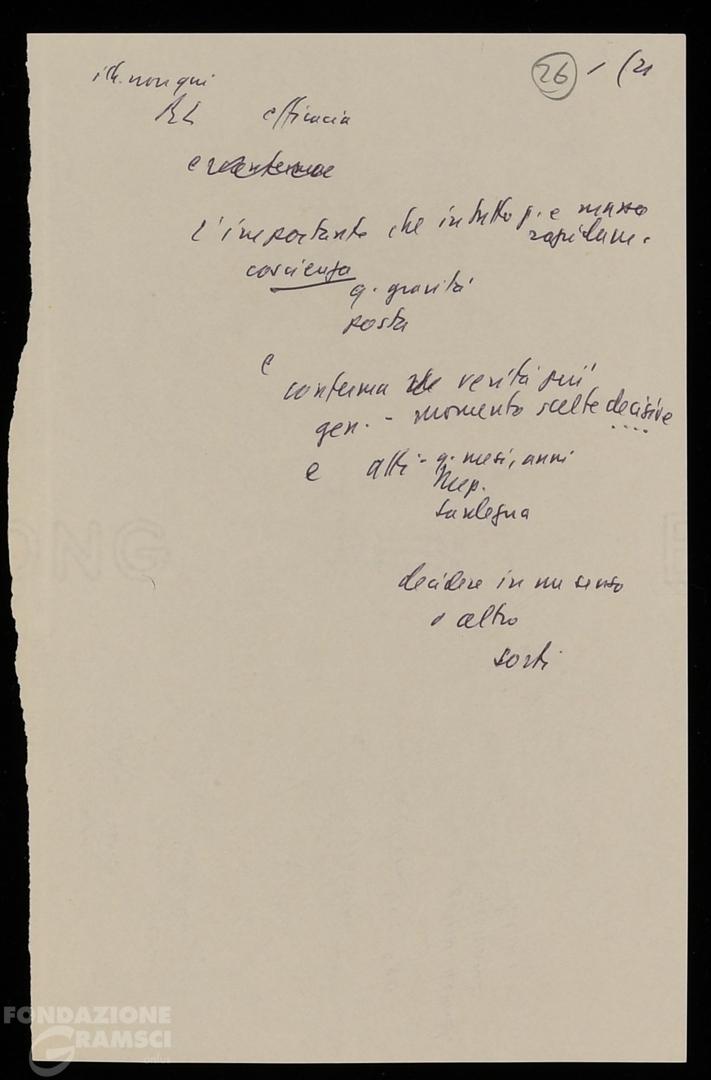 non qui 26 - (21
efficacia
L'importante che in tutto p. e massa
rapidam.
coscienza
q. gravità
posta
e
conferma verità più
gen. - momento scelte decisive
e altri - q. mesi, anni
Rep.
Sardegna
decidere in un senso
o altro
sorti
FONDAZIONE
GRAMSCI
onlus